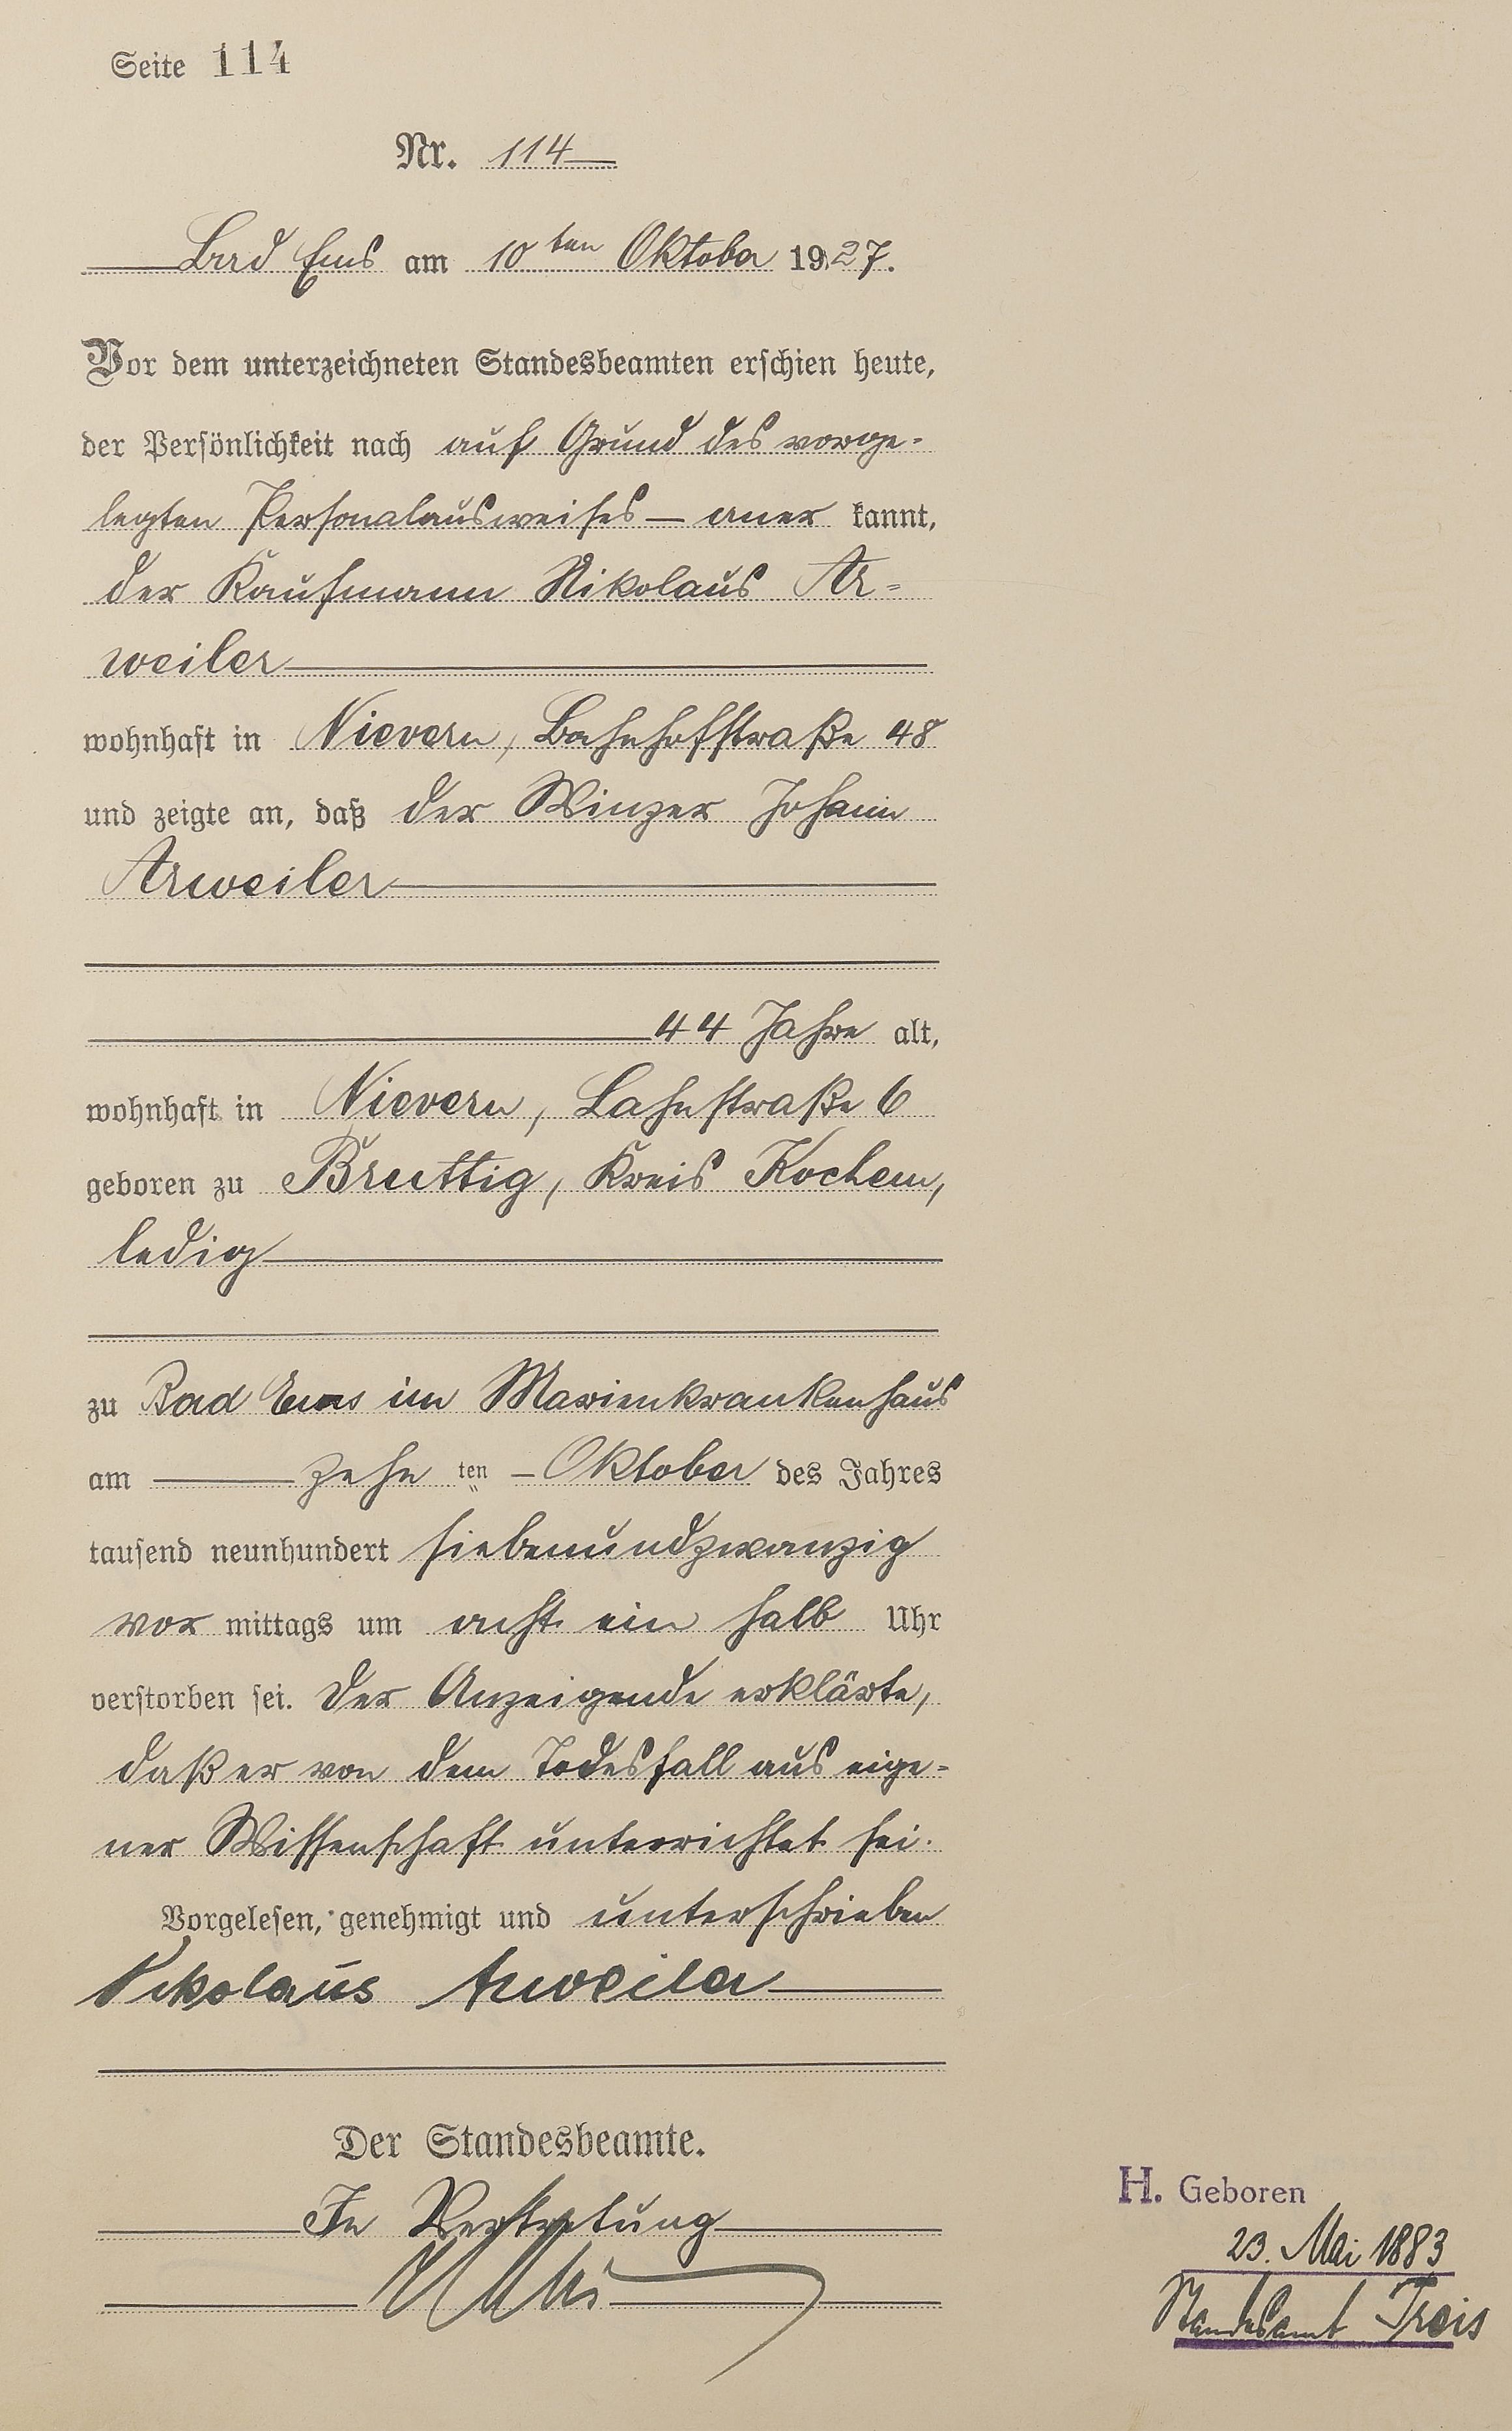 Seite 114
Nr. 114
Bad Ems am 10ten Oktober 1927.
Vor dem unterzeichneten Standesbeamten erschien heute,
der Persönlichkeit nach auf Grund des vorge-
legten Personalausweises — aner kannt,
der Kaufmann Nikolaus Ar-
weiler
wohnhaft in Nievern, Bahnhofstraße 48
und zeigte an, daß der Winzer Johann
Arweiler
44 Jahre alt,
wohnhaft in Nievern, Lahnstraße 6
geboren zu Bruttig, Kreis Kochem,
ledig
zu Bad Ems im Marienkrankenhaus
am zehn ten Oktober des Jahres
tausend neunhundert siebenundzwanzig
vor mittags um acht ein halb Uhr
verstorben sei. Der Anzeigende erklärte,
daß er von dem Todesfall aus eige-
ner Wissenschaft unterrichtet sei.
Vorgelesen, genehmigt und unterschrieben
Nikolaus Arweiler
Der Standesbeamte.
In Vertretung
H. Geboren
23. Mai 1883
Standesamt Treis